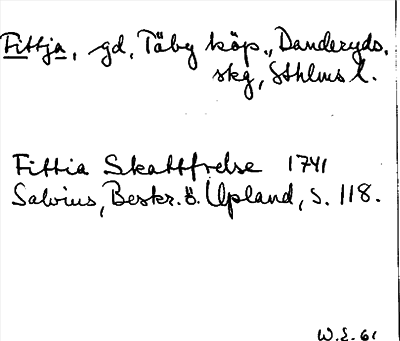 Fittja, gd, Täby köp., Danderyds.
skg, Sthlms l.
Fittia Skattfrelse 1741
Salvius, Beskr. ö. Upland, s. 118.
W.E. 61